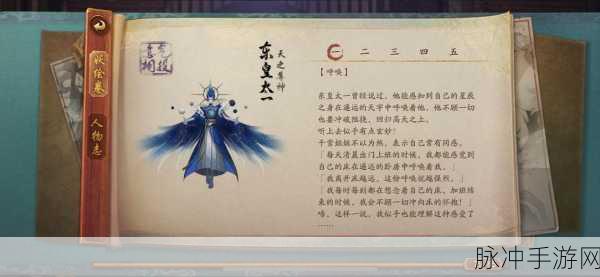 妖绘卷
人物志
东皇太一
天之尊神
一 二 三 四 五
【呼唤】
东皇太一曾经说过，他能感知到自己的星辰
之身在遥远的天宇中呼唤着他，他不顾一切
也要冲破阻挠，回归高天之上。
听上去似乎有点玄妙！
千雪姐姐不以为然，表示自己常有同感。
「每天清晨出门上班的时候，我都能感觉到
自己的床在遥远的卧房中呼唤着我。」
「我离开床越远，这份呼唤就越强烈。」
「我每时每刻都在想念着自己的床，加班结
束的时候，我会不顾一切冲向床的怀抱！」
唔，这样一说，我似乎也能理解这种感受了
……
脉冲手游网